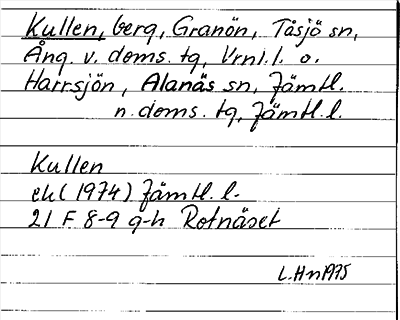 Kullen, berg, Granön, Tåsjö sn,
Ång. v. doms. tg, Vrnl.l. o.
Harrsjön, Alanäs sn, Jämtl.
n. doms. tg, Jämtl.l.
Kullen
ek (1974) Jämtl. l.
21 F 8-9 g-h Rotnäset
L.Hn 1975